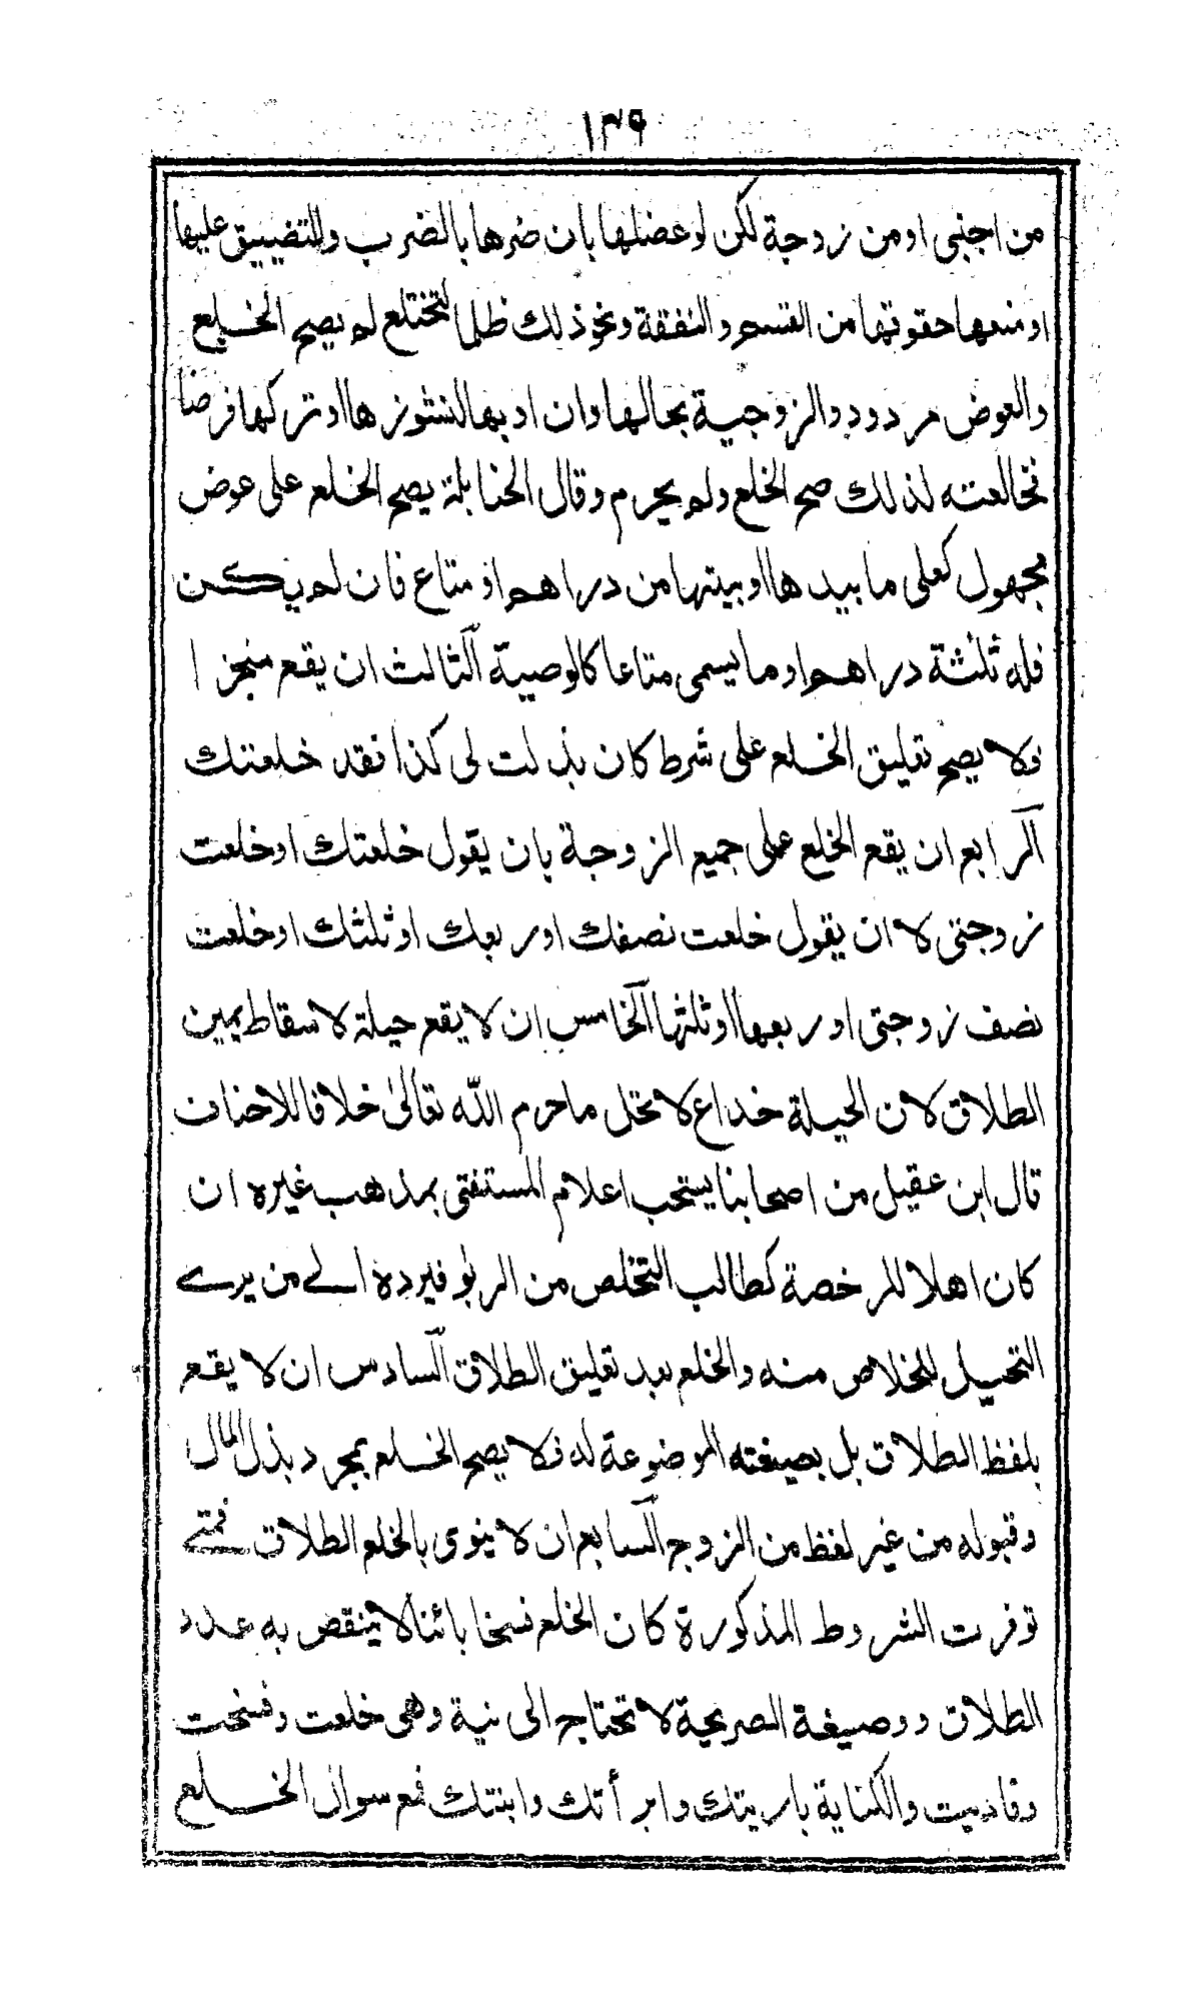 ١٣٩
من اجنبى او من زوجة لكن لو عضلها بان ضرها بالضرب والتضييق عليها
او منعها حقوقها من القسم والنفقة ونحو ذلك ظلما لتختلع لم يصح الخلع
والعوض مردود والزوجية بحالها وان ادبها لنشوزها او تركها فرضا
فخالعته لذلك صح الخلع ولم يحرم وقال الحنابلة يصح الخلع على عوض
مجهول كعلى ما بيدها او بيتها من دراهم او متاع فان لم يكن
فله ثلثة دراهم او ما يسمى متاعا كالوصية الثالث ان يقع منجزا
فلا يصح تعليق الخلع على شرط كان بذلت لى كذا فقد خلعتك
الرابع ان يقع الخلع على جميع الزوجة بان يقول خلعتك او خلعت
زوجتى لا ان يقول خلعت نصفك او ربعك او ثلثك او خلعت
نصف زوجتى او ربعها او ثلثها الخامس ان لا يقع حيلة لاسقاط يمين
الطلاق لان الحيلة خداع لا تحل ما حرم الله تعالى خلافا للاحناف
قال ابن عقيل من اصحابنا يستحب اعلام المستفتى بمذهب غيره ان
كان اهلا للرخصة كطالب التخلص من الربو فيرده الے من يرے
التحيل للخلاص منه والخلع بعد تعليق الطلاق السادس ان لا يقع
بلفظ الطلاق بل بصيغته الموضوعة له فلا يصح الخلع بمجرد بذل المال
وقبوله من غير لفظ من الزوج السابع ان لا ينوى بالخلع الطلاق فمتے
توفرت الشروط المذكورة كان الخلع فسخا بائنا لا ينقص به عدد
الطلاق ووصيغة الصريحة لا تحتاج الى نية وهى خلعت وفسخت
وفاديت والكناية باريتك وابرأتك وابنتك فمع سوال الخلع